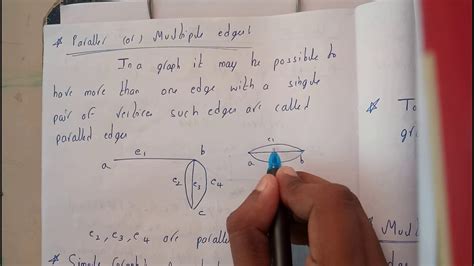 * Parallel (or) Multiple edges
In a graph it may be possible to
have more than one edge with a single
pair of vertices such edges are called
paralled edges
e1
a
b
e2
e3
e4
c
e1
a
b
e2, e3, e4 are paralle
* Simple Graph
* To
gra
* Mult